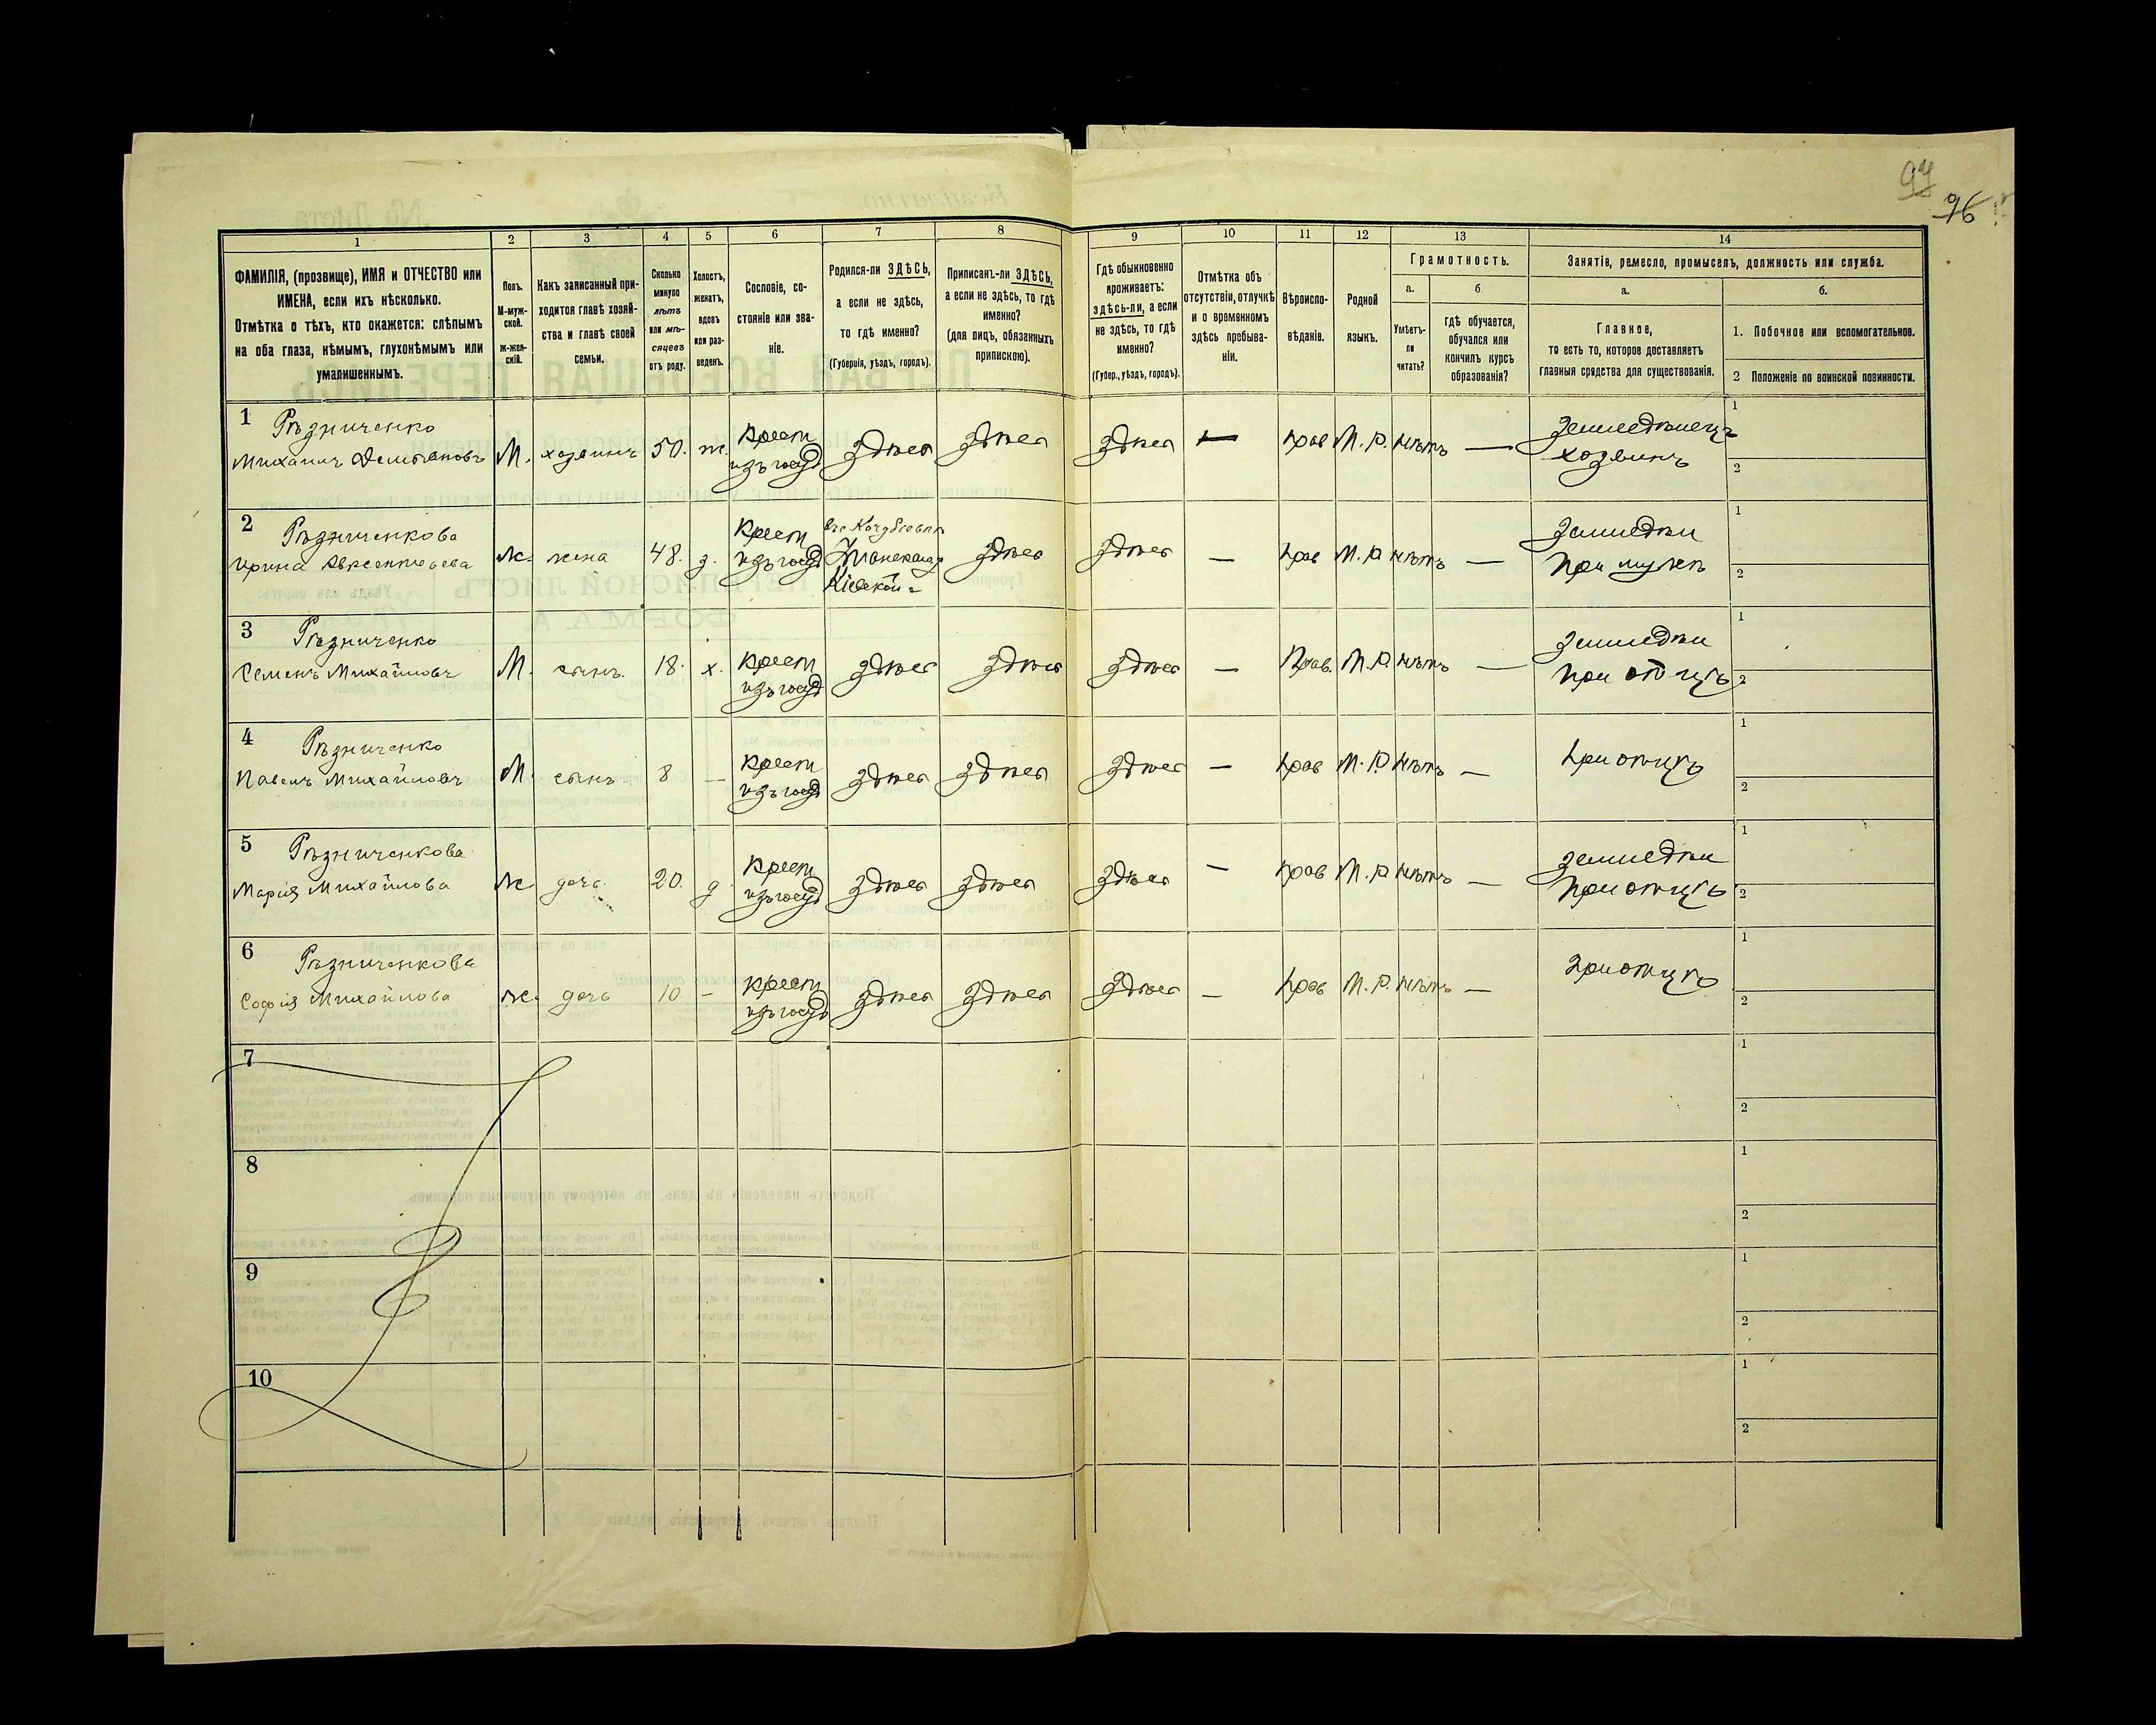 97
96
1 2 3 4 5 6 7 8 9 10 11 12 13 14
ФАМИЛІЯ, (прозвище), ИМЯ и ОТЧЕСТВО или
ИМЕНА, если ихъ нѣсколько.
Отмѣтка о тѣхъ, кто окажется: слѣпымъ
на оба глаза, нѣмымъ, глухонѣмымъ или
умалишеннымъ.
Полъ.
М-муж-
ской.
ж-жен-
скій.
Какъ записанный при-
ходится главѣ хозяй-
ства и главѣ своей
семьи.
Сколько
минуло
лѣтъ
или мѣ-
сяцевъ
отъ роду.
Холостъ,
женатъ,
вдовъ
или раз-
веденъ.
Сословіе, со-
стояніе или зва-
ніе.
Родился-ли ЗДѢСЬ,
а если не здѣсь,
то гдѣ именно?
(Губернія, уѣздъ, городъ).
Приписанъ-ли ЗДѢСЬ,
а если не здѣсь, то гдѣ
именно?
(для лицъ, обязанныхъ
припискою).
Гдѣ обыкновенно
проживаетъ:
здѣсь-ли, а если
не здѣсь, то гдѣ
именно?
(Губер., уѣздъ, городъ).
Отмѣтка объ
отсутствіи, отлучкѣ
и о временномъ
здѣсь пребыва-
ніи.
Вѣроиспо-
вѣданіе.
Родной
языкъ.
Грамотность.
а.
Умѣетъ-
ли
читать?
б
гдѣ обучается,
обучался или
кончилъ курсъ
образованія?
Занятіе, ремесло, промыселъ, должность или служба.
а.
Главное,
то есть то, которое доставляетъ
главныя средства для существованія.
б.
1. Побочное или вспомогательное.
2 Положеніе по воинской повинности.
1 Рѣзниченко
Михаилъ Демьяновъ
М. хозяинъ 50. ж. крест
изъ госуд
здѣсь здѣсь здѣсь — прав М. Р. нѣтъ —
Земледѣлецъ
хозяинъ
1
2
2 Рѣзниченкова
Ирина Авксентьева
ж. жена 48. з. крест
изъ госуд
Кіевской г
здѣсь здѣсь — прав М. Р нѣтъ —
Земледѣл
при мужѣ
1
2
3 Рѣзниченко
Семенъ Михайловъ
М. сынъ. 18. х. крест
изъ госуд
здѣсь здѣсь здѣсь — Прав. М. Р. нѣтъ —
Земледѣл
при отцѣ
1
2
4 Рѣзниченко
Павелъ Михайловъ
М. сынъ 8 — крест
изъ госуд
здѣсь здѣсь здѣсь — прав М. Р. нѣтъ —
при отцѣ
1
2
5 Рѣзниченкова
Марія Михайлова
ж дочь. 20. д. крест
изъ госуд
здѣсь здѣсь здѣсь — прав М. Р нѣтъ —
земледѣл
при отцѣ
1
2
6 Рѣзниченкова
Софія Михайлова
ж. дочь 10 — крест
изъ госуд
здѣсь здѣсь здѣсь — прав М. Р. нѣтъ —
при отцѣ
1
2
7
1
2
8
1
2
9
1
2
10
1
2